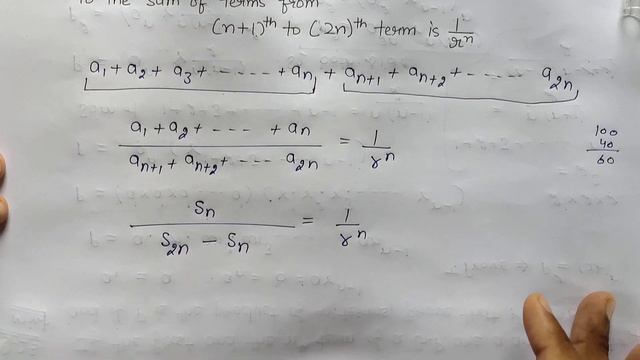 to the sum of terms from
(n+1)th to (2n)th term is 1/r^n
a₁ + a₂ + a₃ + - - - - - + aₙ + aₙ₊₁ + aₙ₊₂ + - - - - - a₂ₙ
a₁ + a₂ + - - - - + aₙ / aₙ₊₁ + aₙ₊₂ + - - - a₂ₙ = 1/r^n
100
40
60
Sₙ / S₂ₙ - Sₙ = 1/r^n